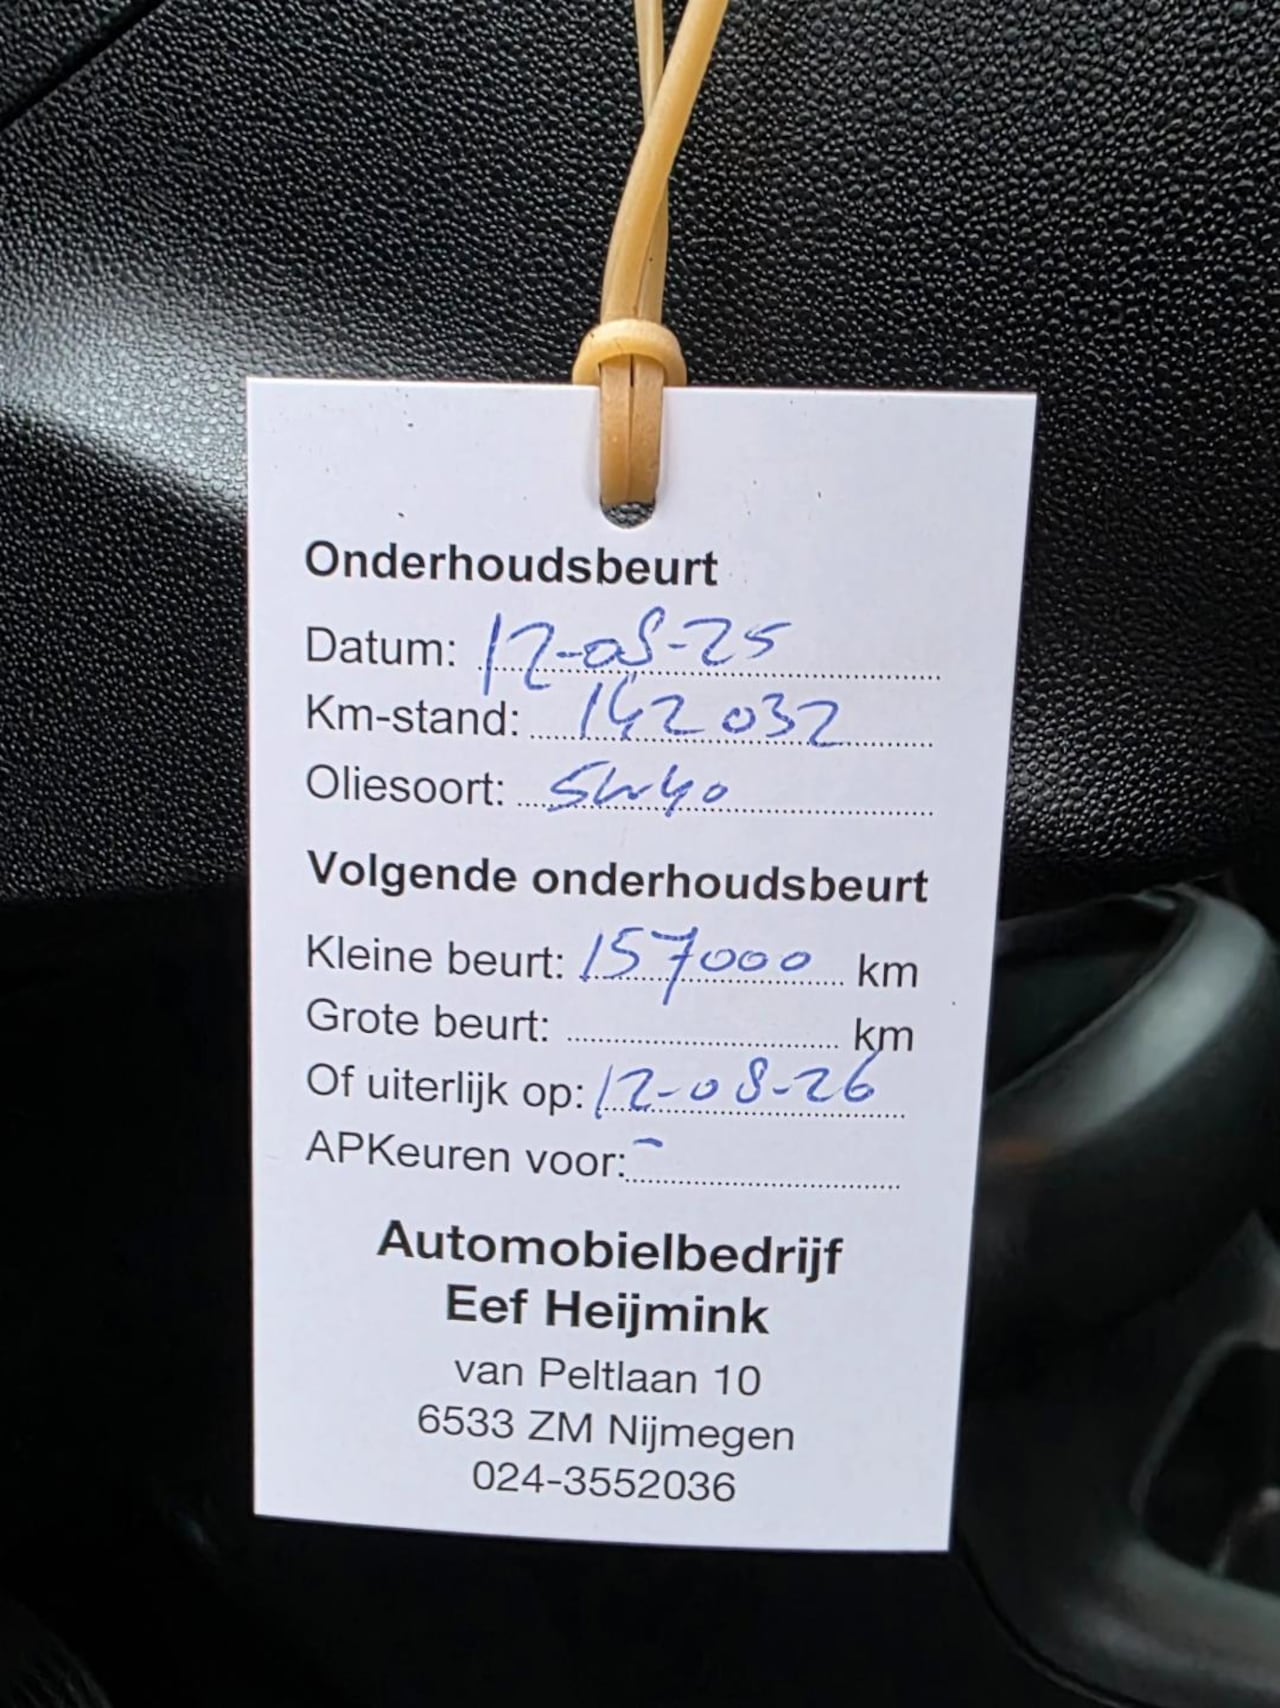 Onderhoudsbeurt
Datum: 12-08-25
Km-stand: 142 032
Oliesoort: 5w40
Volgende onderhoudsbeurt
Kleine beurt: 157000 km
Grote beurt: km
Of uiterlijk op: 12-08-26
APKeuren voor: -
Automobielbedrijf
Eef Heijmink
van Peltlaan 10
6533 ZM Nijmegen
024-3552036